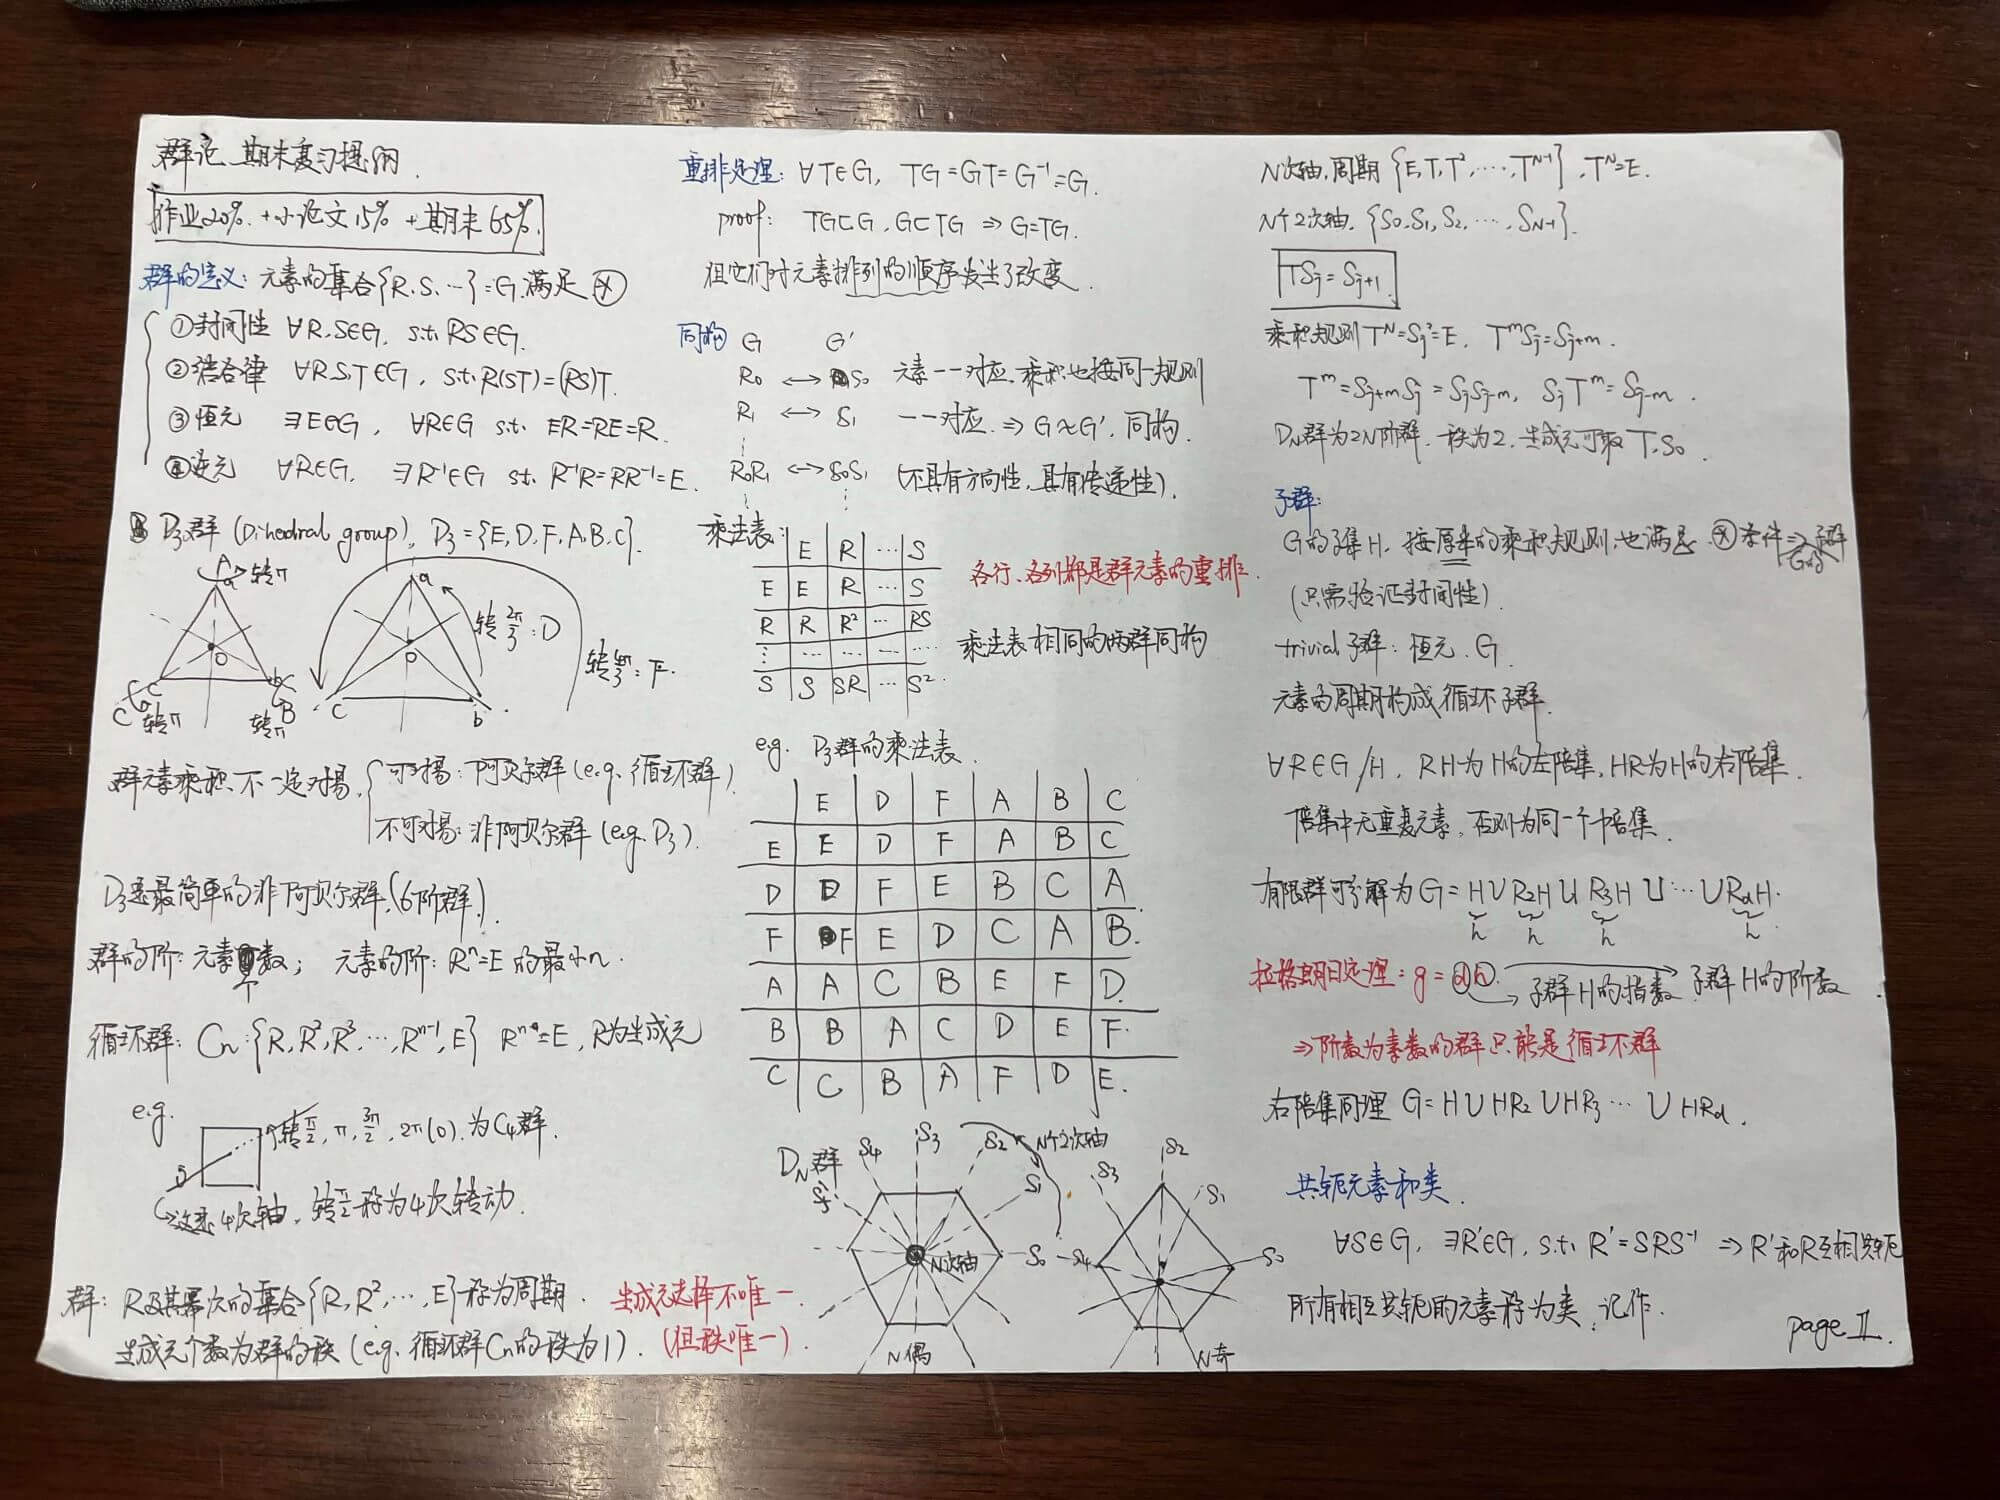 群论 期末复习提纲.
作业20% +小论文15% +期末65%.
群的定义: 元素的集合{R.S.…}=G.满足 ⊗
①封闭性 ∀R,S∈G, s.t. RS∈G.
②结合律 ∀R.S.T∈G, s.t. R(ST)=(RS)T.
③恒元 ∃E∈G, ∀R∈G s.t. ER=RE=R.
④逆元 ∀R∈G, ∃R⁻¹∈G s.t. R⁻¹R=RR⁻¹=E.
D₃群 (Dihedral group), D₃={E,D,F,A,B,C}.
A
a 转π
O
c b
C 转π
B 转π
a
O
c b
转2π/3:D
转4π/3:F.
群元素乘积不一定对易.
可对易:阿贝尔群(e.g. 循环群)
不可对易:非阿贝尔群 (e.g. D₃).
D₃是最简单的非阿贝尔群.(6阶群.)
群的阶:元素个数; 元素的阶:Rⁿ=E的最小n.
循环群: Cn:{R,R²,R³,…,Rⁿ⁻¹,E} Rⁿ=E, R为生成元
e.g. 转π/2,π,3π/2,2π(0).为C₄群.
→这是4次轴, 转π/2称为4次转动.
群: R及其幂次的集合{R,R²,…,E}称为周期. 生成元选择不唯一.
生成元个数为群的秩(e.g. 循环群Cn的秩为1). (但秩唯一)
重排定理: ∀T∈G, TG=GT=G⁻¹=G.
proof: TG⊂G,G⊂TG ⇒ G=TG.
但它们对元素排列的顺序发生了改变.
同构 G G'
R₀ ↔ S₀ 元素一一对应.乘积也按同一规则
R₁ ↔ S₁ 一一对应.⇒G≈G'.同构.
⋮
R₀R₁ ↔ S₀S₁ (不具有方向性,具有传递性).
⋮
乘法表:
E R … S
E E R … S
R R R² … RS
⋮ … … … …
S S SR … S²
各行、各列都是群元素的重排.
乘法表相同的两群同构
e.g. D₃群的乘法表.
E D F A B C
E E D F A B C
D D F E B C A
F F E D C A B.
A A C B E F D.
B B A C D E F.
C C B A F D E.
D_N群
S₅ S₄ S₃ S₂ S₁ S₀
N个2次轴
N次轴
N偶
S₄ S₃ S₂ S₁ S₀
N奇
N次轴.周期{E,T,T²,…,Tᴺ⁻¹}.Tᴺ=E.
N个2次轴. {S₀,S₁,S₂,…,S_{N-1}}.
TSⱼ=Sⱼ₊₁.
乘积规则Tᴺ=Sⱼ²=E, TᵐSⱼ=Sⱼ₊ₘ.
Tᵐ=Sⱼ₊ₘSⱼ=SⱼSⱼ₋ₘ, SⱼTᵐ=Sⱼ₋ₘ.
D_N群为2N阶群.秩为2.生成元可取T,S₀.
子群:
G的子集H, 按原来的乘积规则,也满足⊗条件⇒G的子群
(只需验证封闭性).
trivial子群: 恒元.G.
元素的周期构成循环子群.
∀R∈G/H, RH为H的左陪集,HR为H的右陪集.
陪集中无重复元素,否则为同一个陪集.
有限群可分解为G=H∪R₂H∪R₃H∪…∪R_dH.
h h h h
拉格朗日定理: g=dh. →子群H的指数 子群H的阶数.
⇒阶数为素数的群只能是循环群
右陪集同理 G=H∪HR₂∪HR₃…∪HR_d.
共轭元素和类.
∀S∈G, ∃R'∈G, s.t. R'=SRS⁻¹ ⇒R'和R互相共轭
所有相互共轭的元素称为类,记作.
page II.